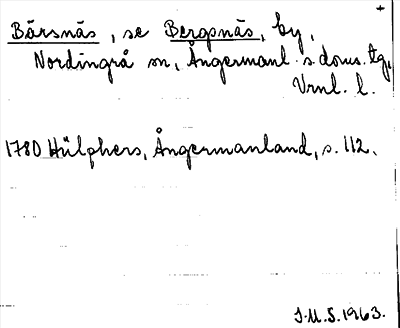 +
Bärsnäs, se Bergsnäs, by,
Nordingrå sn, Ångermanl. s doms. tg,
Vrnl. l.
1780 Hülphers, Ångermanland, s. 112.
I.M.S. 1963.